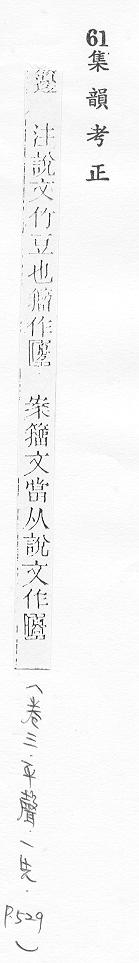 61集韻考正
籩 注說文竹豆也籀作𠥱 案籀文當从說文作𠥱
（卷三．平聲．一先．P.529）